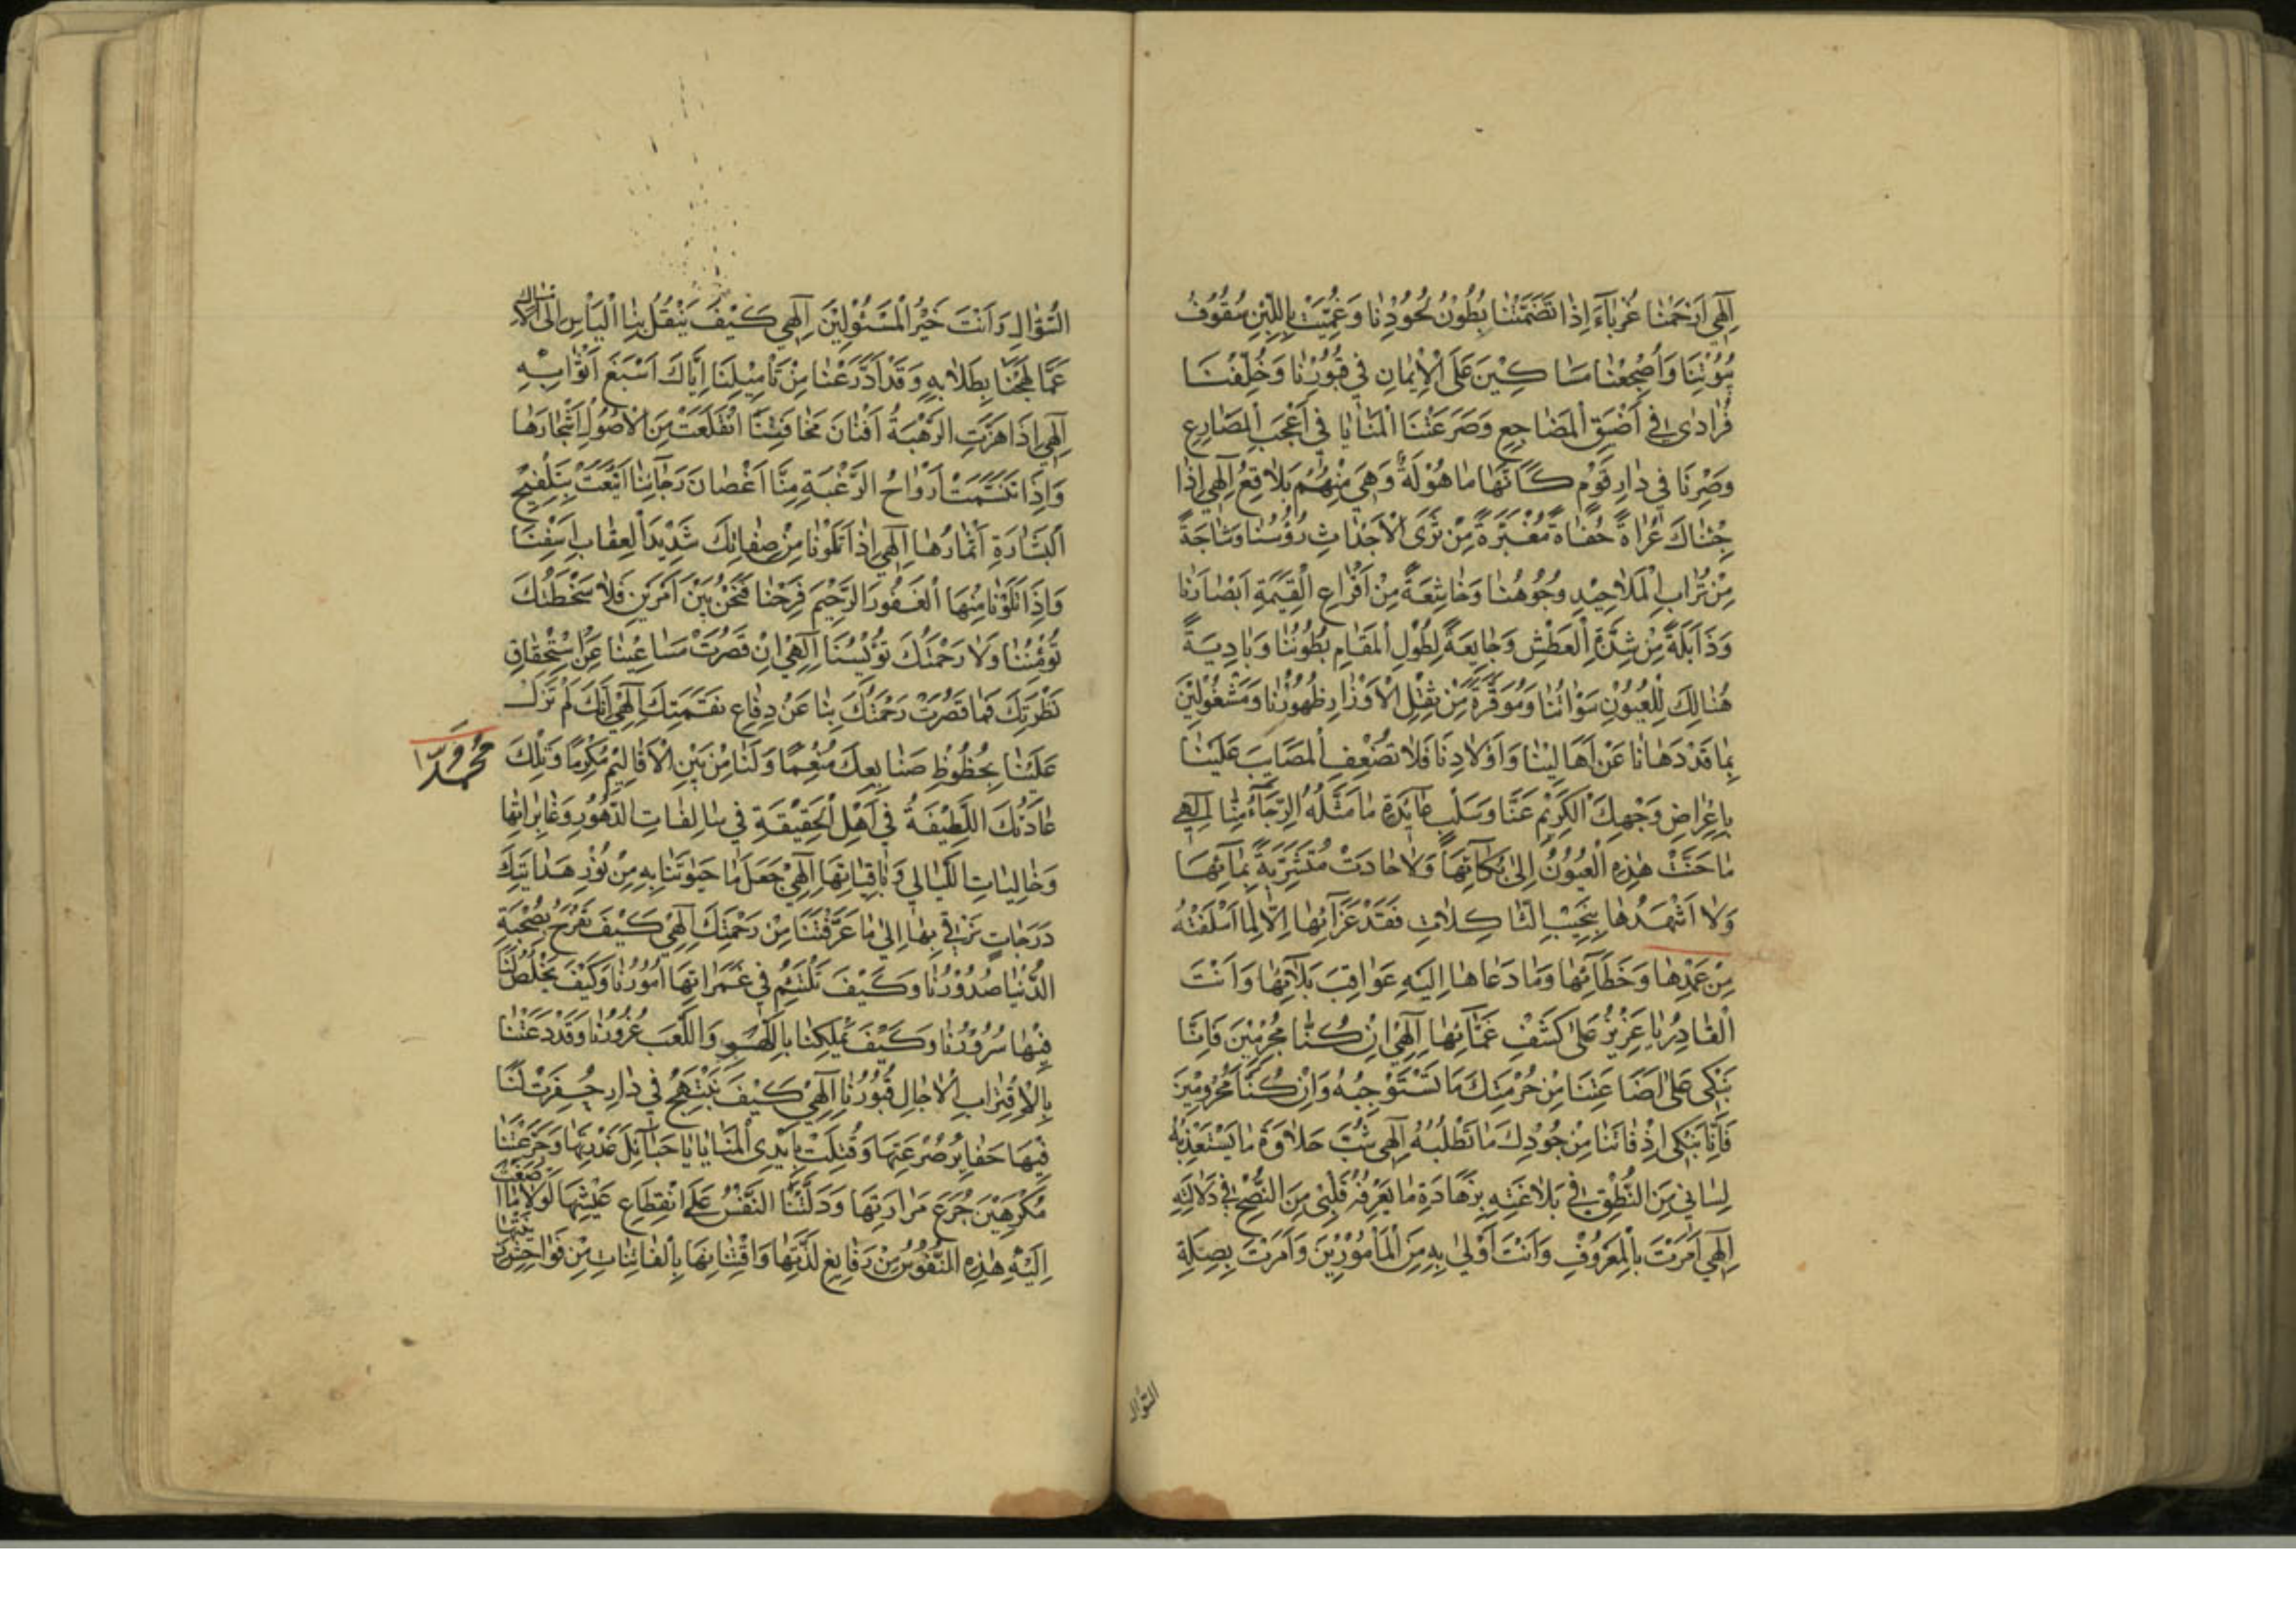 اِلٰهِي اَرْحَمْنَا غُرَبَآءَ اِذَا تَضَمَّنَتْنَا بُطُونُ لُحُوْدِنَا وَغُمِّيَتْ بِاللَّبِنِ سُقُوفُ
بُيُوْتِنَا وَاُضْجِعْنَا مَسَاكِيْنَ عَلَى الْاَيْمَانِ فِي قُبُوْرِنَا وَخُلِّفْنَا
فُرَادٰى فِي اَضْيَقِ الْمَضَاجِعِ وَصَرَعَتْنَا الْمَنَايَا فِي اَعْجَبِ الْمَصَارِعِ
وَصِرْنَا فِي دَارِ قَوْمٍ كَاَنَّهَا مَاهُوْلَةٌ وَهِيَ مِنْهُمْ بَلَاقِعُ اِلٰهِي اِذَا
جِئْنَاكَ عُرَاةً حُفَاةً مُغْبَرَّةً مِنْ ثَرَى الْاَجْدَاثِ رُؤُسُنَا وَشَاحِبَةً
مِنْ تُرَابِ الْمَلَاحِيْدِ وُجُوْهُنَا وَخَاشِعَةً مِنْ اَفْزَاعِ الْقِيٰمَةِ اَبْصَارُنَا
وَذَابِلَةً مِنْ شِدَّةِ الْعَطَشِ وَجَايِعَةً لِطُوْلِ الْمَقَامِ بُطُوْنُنَا وَبَادِيَةً
هُنَالِكَ لِلْعُيُوْنِ سَوْاٰتُنَا وَمُوَقَّرَةً مِنْ ثِقْلِ الْاَوْزَارِ ظُهُوْرُنَا وَمَشْغُوْلِيْنَ
بِمَا قَدْ دَهَانَا عَنْ اَهَالِيْنَا وَاَوْلَادِنَا فَلَا تُضْعِفِ الْمَصَايِبَ عَلَيْنَا
بِاِعْرَاضِ وَجْهِكَ الْكَرِيْمِ عَنَّا وَسَلْبِ عَايِدَةِ مَا مَثَّلَهُ الرَّجَآءُ مِنَّا اِلٰهِي
مَا حَنَّتْ هٰذِهِ الْعُيُوْنُ اِلٰى بُكَآئِهَا وَلَا جَادَتْ مُتَشَرِّبَةً بِمَآئِهَا
وَلَا اَشْهَدَهَا بِنَحِيْبِ الثَّاكِلَاتِ فَقْدُ عَزَآئِهَا اِلَّا لِمَا اَسْلَفَتْهُ
مِنْ عَمْدِهَا وَخَطَآئِهَا وَمَا دَعَاهَا اِلَيْهِ عَوَاقِبَ بَلَآئِهَا وَاَنْتَ
الْقَادِرُ يَا عَزِيْزُ عَلٰى كَشْفِ غَمَّآئِهَا اِلٰهِي اِنْ كُنَّا مُجْرِمِيْنَ فَاِنَّا
نَبْكِي عَلٰى اِضَاعَتِنَا مِنْ حُرْمَتِكَ مَا تَسْتَوْجِبُهُ وَاِنْ كُنَّا مَحْرُوْمِيْنَ
فَاِنَّا نَبْكِي اِذْ فَاتَنَا مِنْ جُوْدِكَ مَا نَطْلُبُهُ اِلٰهِي شُبْ حَلَاوَةَ مَا يَسْتَعْذِبُهُ
لِسَانِي مِنَ النُّطْقِ فِي بَلَاغَتِهِ بِزَهَادَةِ مَا يَعْرِفُهُ قَلْبِي مِنَ النُّصْحِ فِي دَلَالَتِهِ
اِلٰهِي اَمَرْتَ بِالْمَعْرُوْفِ وَاَنْتَ اَوْلٰى بِهِ مِنَ الْمَاْمُوْرِيْنَ وَاَمَرْتَ بِصِلَةِ
السُّؤَالِ
السُّؤَالِ وَاَنْتَ خَيْرُ الْمَسْئُوْلِيْنَ اِلٰهِي كَيْفَ يَنْقُلُ بِنَا الْيَاْسُ اِلَى الْاِمْسَاكِ
عَمَّا لَهِجْنَا بِطِلَابِهِ وَقَدْ اَدَّرَعْنَا مِنْ تَاْمِيْلِنَا اِيَّاكَ اَسْبَغَ اَثْوَابِهِ
اِلٰهِي اِذَا هَزَّتِ الرَّهْبَةُ اَفْنَانَ مَخَافَتِنَا انْقَلَعَتْ مِنَ الْاُصُوْلِ اَشْجَارُهَا
وَاِذَا تَنَسَّمَتْ اَرْوَاحُ الرَّغْبَةِ مِنَّا اَغْصَانَ رَجَآئِنَا اَيْنَعَتْ بِتَلْقِيْحِ
الْبِشَارَةِ اَثْمَارُهَا اِلٰهِي اِذَا تَلَوْنَا مِنْ صِفَاتِكَ شَدِيْدَ الْعِقَابِ اَسِفْنَا
وَاِذَا تَلَوْنَا مِنْهَا الْغَفُوْرَ الرَّحِيْمَ فَرِحْنَا فَنَحْنُ بَيْنَ اَمْرَيْنِ فَلَا سَخْطَتُكَ
تُؤْمِنُنَا وَلَا رَحْمَتُكَ تُؤْيِسُنَا اِلٰهِي اِنْ قَصُرَتْ مَسَاعِيْنَا عَنِ اسْتِحْقَاقِ
نَظْرَتِكَ فَمَا قَصُرَتْ رَحْمَتُكَ بِنَا عَنْ دِفَاعِ نَقِمَتِكَ اِلٰهِي اِنَّكَ لَمْ تَزَلْ
عَلَيْنَا بِحُظُوْظِ صَنَايِعِكَ مُنْعِمًا وَلَنَا مِنْ بَيْنِ الْاَقَالِيْمِ مُكْرِمًا وَتِلْكَ
عَادَتُكَ اللَّطِيْفَةُ فِي اَهْلِ الْحَقِيْقَةِ فِي سَالِفَاتِ الدُّهُوْرِ وَغَابِرَاتِهَا
وَخَالِيَاتِ اللَّيَالِي وَبَاقِيَاتِهَا اِلٰهِي جَعَلْ مَا حَبَوْتَنَا بِهِ مِنْ نُوْرِ هِدَايَتِكَ
دَرَجَاتٍ نَرْقٰى بِهَا اِلٰى مَا عَرَّفْتَنَا مِنْ رَحْمَتِكَ اِلٰهِي كَيْفَ تَفْرَحُ بِصُحْبَةِ
الدُّنْيَا صُدُوْرُنَا وَكَيْفَ تَلْتَئِمُ فِي غَمَرَاتِهَا اُمُوْرُنَا وَكَيْفَ يَخْلُصُ لَنَا
فِيْهَا سُرُوْرُنَا وَكَيْفَ يَمْلِكُنَا بِاللَّهْوِ وَاللَّعِبِ غُرُوْرُنَا وَقَدْ دَعَتْنَا
بِالْاِقْتِرَابِ الْاٰجَالِ قُبُوْرُنَا اِلٰهِي كَيْفَ نَبْتَهِجُ فِي دَارٍ حُفِرَتْ لَنَا
فِيْهَا حَفَايِرُ صُرْعَتِهَا وَفُتِلَتْ بِاَيْدِي الْمَنَايَا يَا حَبَآئِلُ غَدْرَتِهَا وَجَرَّعَتْنَا
مُكْرَهِيْنَ جُرَعَ مَرَارَتِهَا وَدَلَّتْنَا النَّفْسُ عَلَى انْقِطَاعِ عَيْشِهَا لَوْلَا مَا اَصْغَتْ
اِلَيْهِ هٰذِهِ النُّفُوْسُ مِنْ رَفَايِغِ لَذَّتِهَا وَافْتِتَانِهَا بِالْفَانِيَاتِ مِنْ فَوَاحِشِ